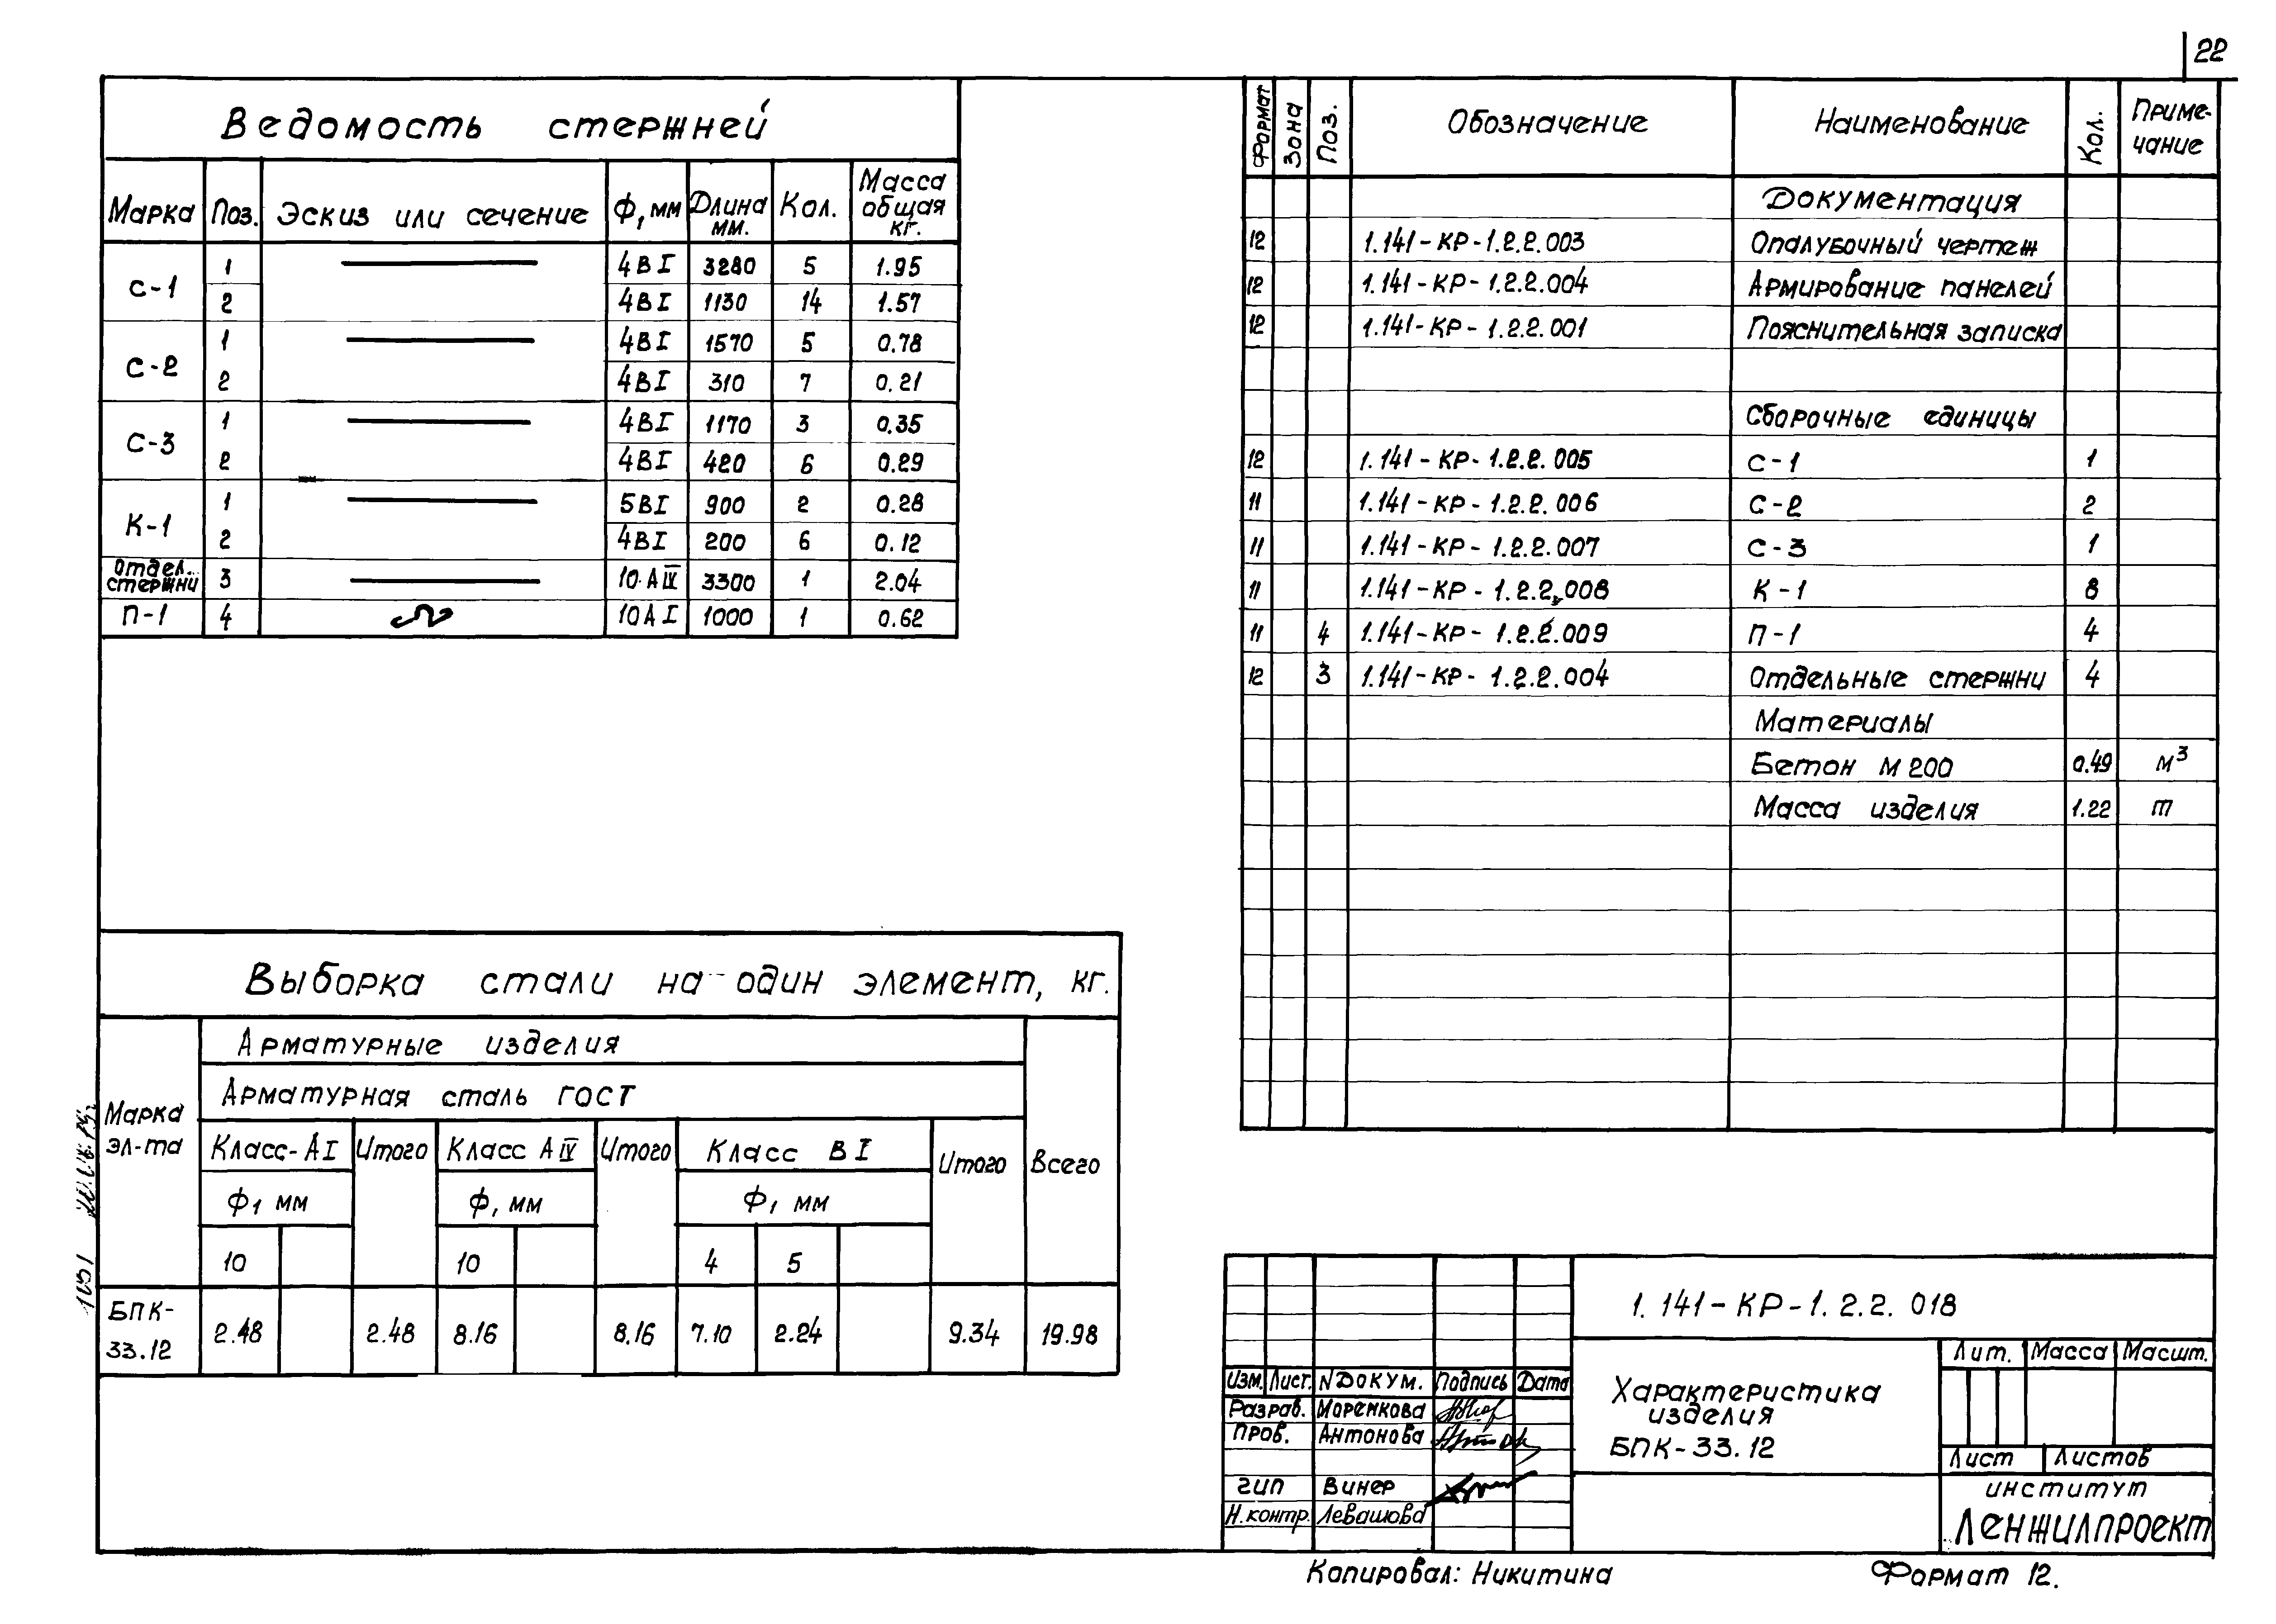 22
Ведомость стержней
Марка Поз. Эскиз или сечение Ф, мм Длина мм. Кол. Масса общая кг.
С-1 1 4ВI 3280 5 1.95
2 4ВI 1130 14 1.57
С-2 1 4ВI 1570 5 0.78
2 4ВI 310 7 0.21
С-3 1 4ВI 1170 3 0.35
2 4ВI 420 6 0.29
К-1 1 5ВI 900 2 0.28
2 4ВI 200 6 0.12
Отдел. стержни 3 10 АIV 3300 1 2.04
П-1 4 10 АI 1000 1 0.62
Формат Зона Поз. Обозначение Наименование Кол. Приме-чание
Документация
12 1.141-КР-1.2.2.003 Опалубочный чертеж
12 1.141-КР-1.2.2.004 Армирование панелей
12 1.141-КР-1.2.2.001 Пояснительная записка
Сборочные единицы
12 1.141-КР-1.2.2.005 С-1 1
11 1.141-КР-1.2.2.006 С-2 2
11 1.141-КР-1.2.2.007 С-3 1
11 1.141-КР-1.2.2.008 К-1 8
11 4 1.141-КР-1.2.2.009 П-1 4
12 3 1.141-КР-1.2.2.004 Отдельные стержни 4
Материалы
Бетон М200 0.49 м³
Масса изделия 1.22 т
Выборка стали на один элемент, кг.
Марка эл-та
Арматурные изделия
Арматурная сталь ГОСТ
Класс-АI Итого Класс АIV Итого Класс ВI Итого Всего
Ф, мм Ф, мм Ф, мм
10 10 4 5
БПК-33.12 2.48 2.48 8.16 8.16 7.10 2.24 9.34 19.98
1.141-КР-1.2.2.018
Изм. Лист. N Докум. Подпись Дата
Разраб. Моренкова
Пров. Антонова
ГИП Винер
Н. контр. Левашова
Характеристика
изделия
БПК-33.12
Лит. Масса Масшт.
Лист Листов
институт
Ленжилпроект
Копировал: Никитина
Формат 12.